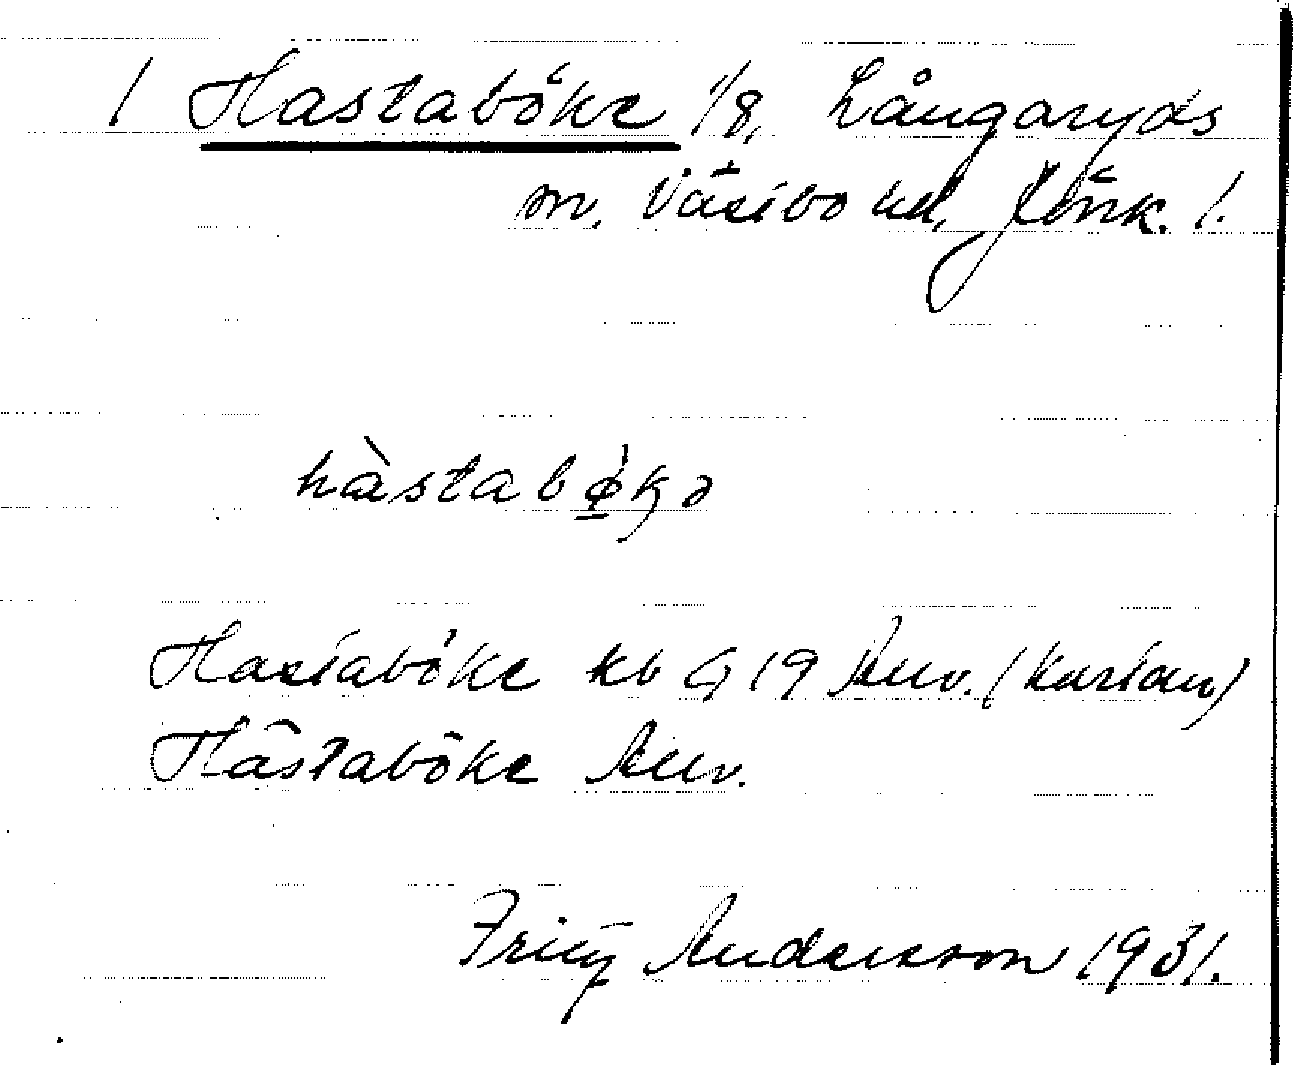 1 Hastaböke 1/8, Långaryds
sn, Västbo hd, Jönk. l.
hàstabø̀kə
Hastaböke kb G 19 Anv. (kartan)
Hästaböke Anv.
Fritz Andersson 1931.